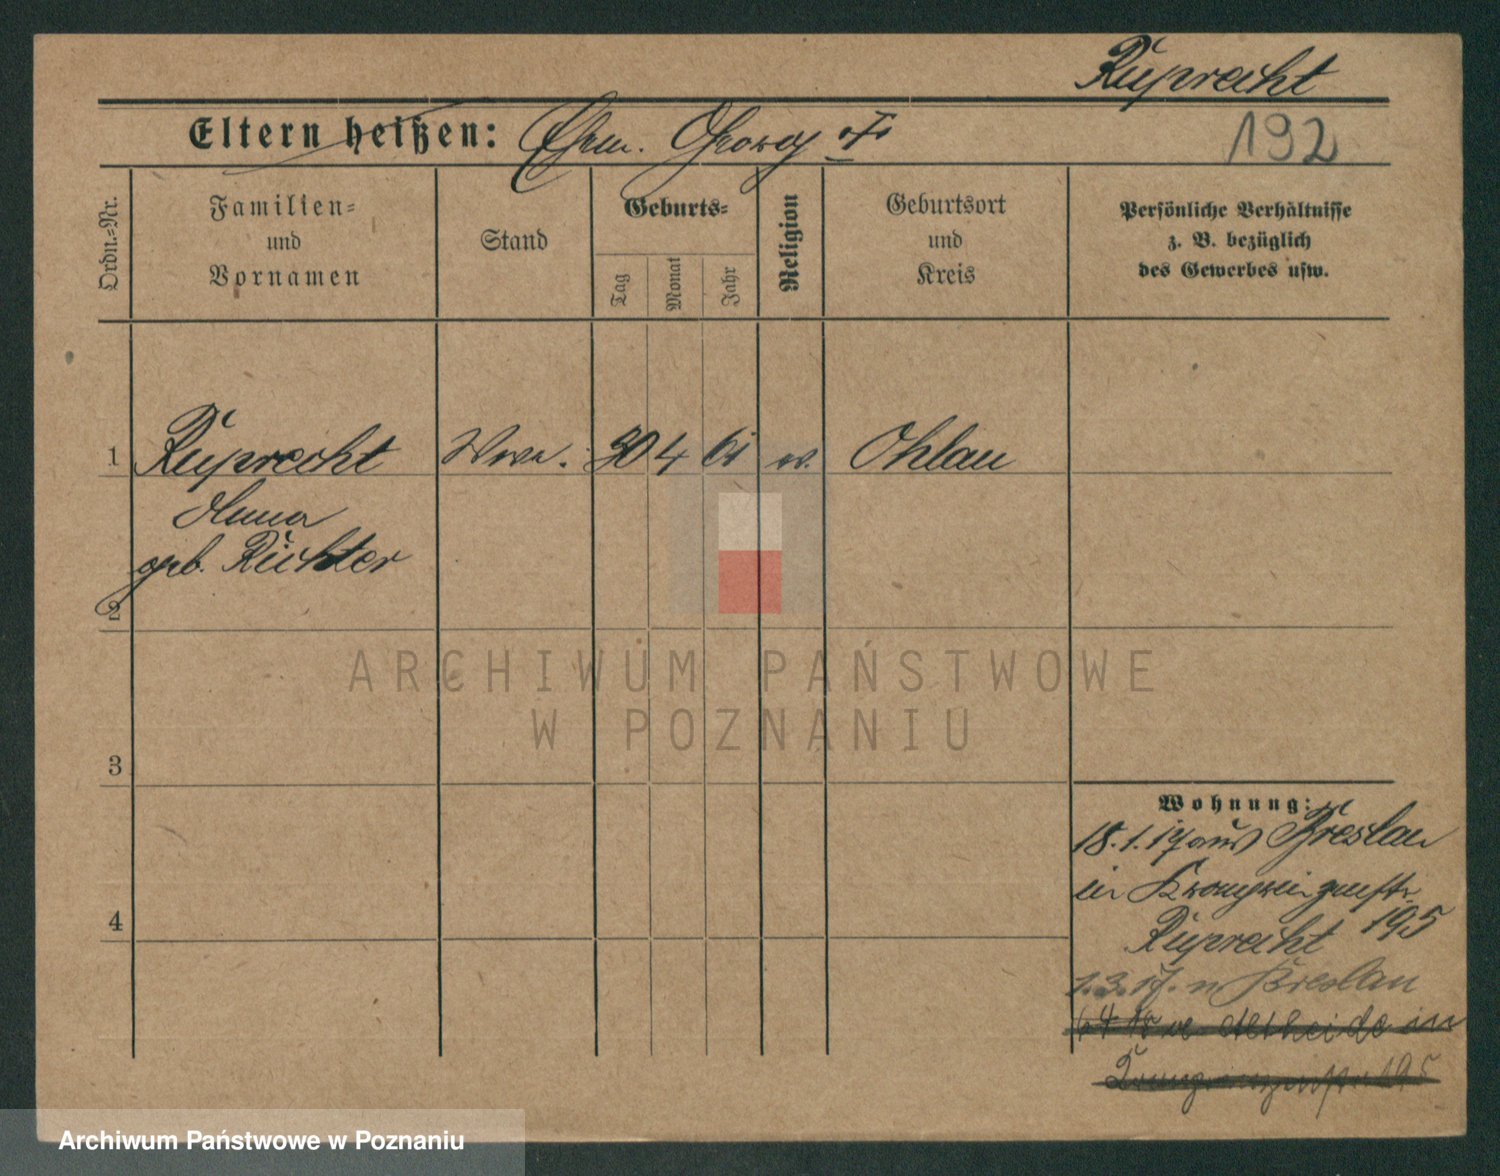 Ruprecht
Eltern heißen: Ehem. Georg †
192
Ordn.=Nr.
Familien=
und
Vornamen
Stand
Geburts=
Tag
Monat
Jahr
Religion
Geburtsort
und
Kreis
Persönliche Verhältnisse
z. B. bezüglich
des Gewerbes usw.
1 Ruprecht Wwe. 30 4 61 ev. Ohlau
Anna
geb. Richter
2
3
4
Wohnung:
18.1.17 aus Breslau
in Kronprinzenstr.
Ruprecht 195
1.3.17. n Breslau
Altheide in
Kronprinzenstr 195
ARCHIWUM PAŃSTWOWE
W POZNANIU
Archiwum Państwowe w Poznaniu